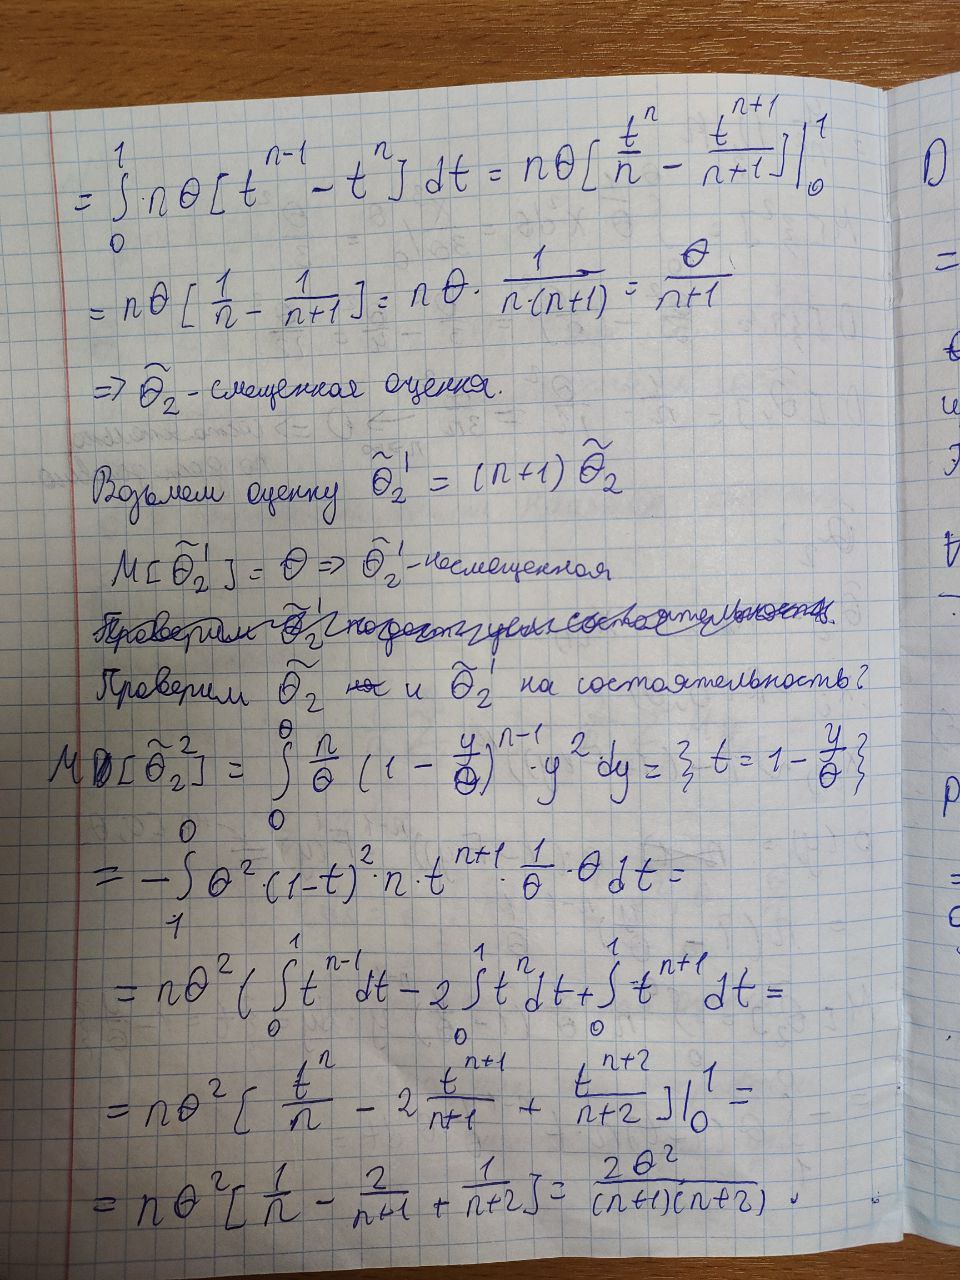 = ∫₀¹ nθ[t^{n-1} - t^n] dt = nθ[t^n/n - t^{n+1}/(n+1)]|₀¹
= nθ[1/n - 1/(n+1)] = nθ · 1/(n·(n+1)) = θ/(n+1)
=> θ̃₂ - смещенная оценка.
Возьмем оценку θ̃₂' = (n+1) θ̃₂
M[θ̃₂'] = θ => θ̃₂' - несмещенная
Проверим θ̃₂ и θ̃₂' на состоятельность?
M[θ̃₂²] = ∫₀^θ n/θ (1 - y/θ)^{n-1} · y² dy = } t = 1 - y/θ }
= -∫₁⁰ θ² · (1-t)² · n · t^{n+1} · 1/θ · θ dt =
= nθ² (∫₀¹ t^{n-1} dt - 2 ∫₀¹ t^n dt + ∫₀¹ t^{n+1} dt =
= nθ² [t^n/n - 2 t^{n+1}/(n+1) + t^{n+2}/(n+2)]|₀¹ =
= nθ² [1/n - 2/(n+1) + 1/(n+2)] = 2θ²/((n+1)(n+2)).
D
=
=